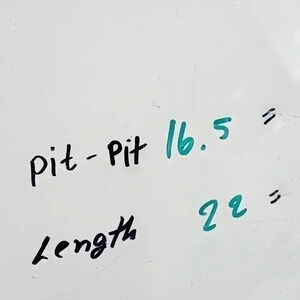 pit - pit 16.5 "
Length 22 "